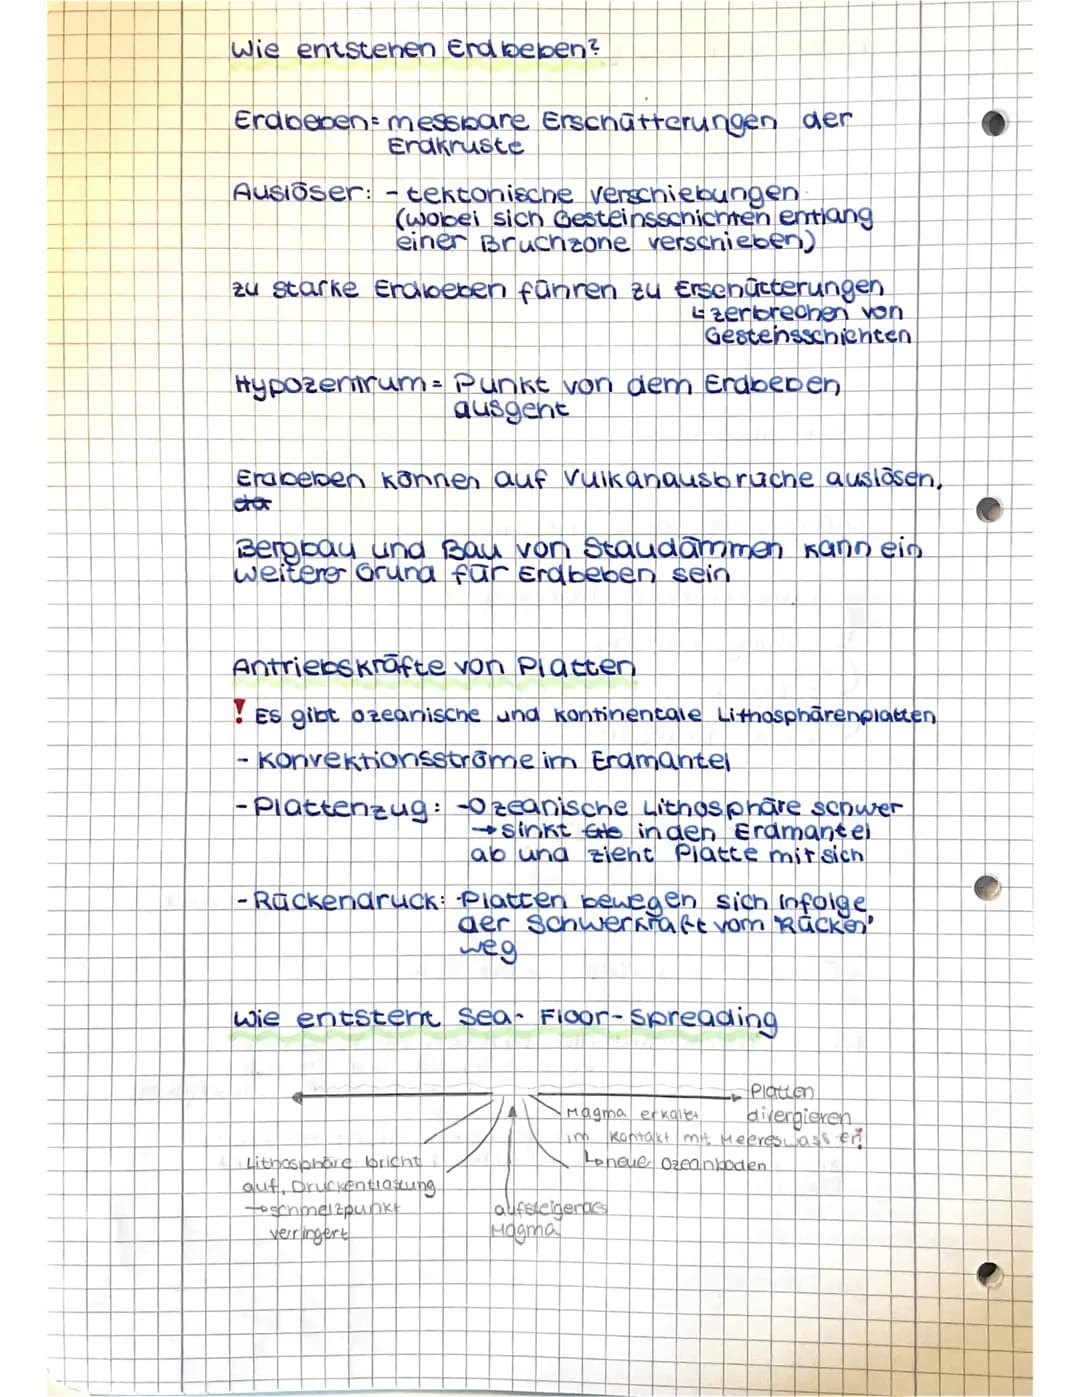 Wie entstehen Erdbeben?
Erdbeben= messbare Erschütterungen der
Erdkruste
Auslöser: - tektonische Verschiebungen
(wobei sich Gesteinsschichten entlang
einer Bruchzone verschieben)
zu starke Erdbeben führen zu Erschütterungen
↳ zerbrechen von
Gesteinsschichten
Hypozentrum = Punkt von dem Erdbeben
ausgeht
Erdbeben können auf Vulkanausbrüche auslösen,
Bergbau und Bau von Staudämmen kann ein
weiterer Grund für Erdbeben sein
Antriebskräfte von Platten
! Es gibt ozeanische und kontinentale Lithosphärenplatten
- Konvektionsströme im Erdmantel
- Plattenzug: - Ozeanische Lithosphäre schwer
→ sinkt in den Erdmantel
ab und zieht Platte mit sich
- Rückendruck: - Platten bewegen sich infolge
der Schwerkraft vom "Rücken"
weg
Wie entsteht Sea- Floor-Spreading
Platten
divergieren
Magma erkaltet
im Kontakt mit Meereswasser!
↳ neue Ozeanboden
Lithosphäre bricht
auf, Druckentlastung
→ schmelzpunkt
verringert
aufsteigendes
Magma